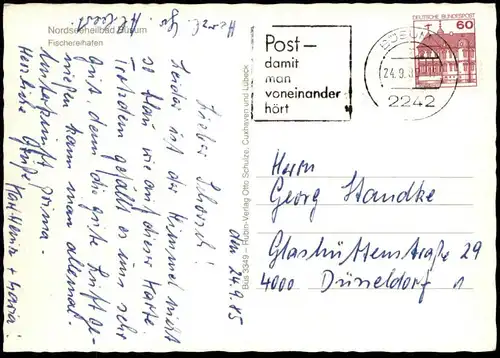 Nordseeheilbad Büsum
Fischereihafen
den 24.9.85
Lieber Schorsch!
Leider ist der Himmel nicht
so blau wie auf dieser Karte.
Trotzdem gefällt es uns sehr
gut, denn die gute Luft ge-
nießen kann man allemal.
Unterkunft prima.
Herzliche Grüße Karl Heinz + Maria.
Büs 3349 – Rubin-Verlag Otto Schulze, Cuxhaven und Lübeck
Post –
damit
man
voneinander
hört
BÜSUM
24.9.
2242
DEUTSCHE BUNDESPOST
60
Herrn
Georg Standke
Glashüttenstraße 29
4000 Düsseldorf 1